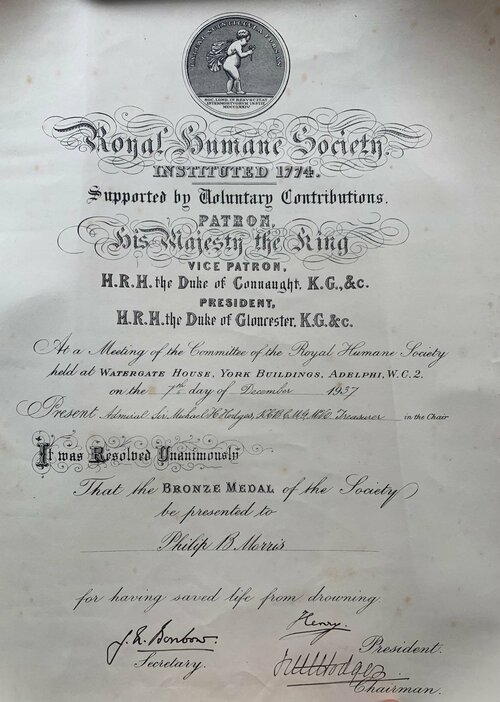 LATEAT SCINTILLVLA FORSAN
SOC. LOND. IN RESVSCITAT
INTERMORTVORVM INSTIT.
MDCCLXXIV
Royal Humane Society.
INSTITUTED 1774.
Supported by Voluntary Contributions.
PATRON,
His Majesty the King
VICE PATRON,
H.R.H. the Duke of Connaught, K.G.,&c.
PRESIDENT,
H.R.H. the Duke of Gloucester, K.G.&c.
At a Meeting of the Committee of the Royal Humane Society
held at WATERGATE HOUSE, YORK BUILDINGS, ADELPHI, W.C.2.
on the 7th day of December 1937
Present Admiral Sir Michael H. Hodges, K.C.B. C.M.G. M.V.O. Treasurer in the Chair
It was Resolved Unanimously
That the BRONZE MEDAL of the Society
be presented to
Philip B Morris
for having saved life from drowning.
Henry.
President.
Secretary.
Hodges
Chairman.